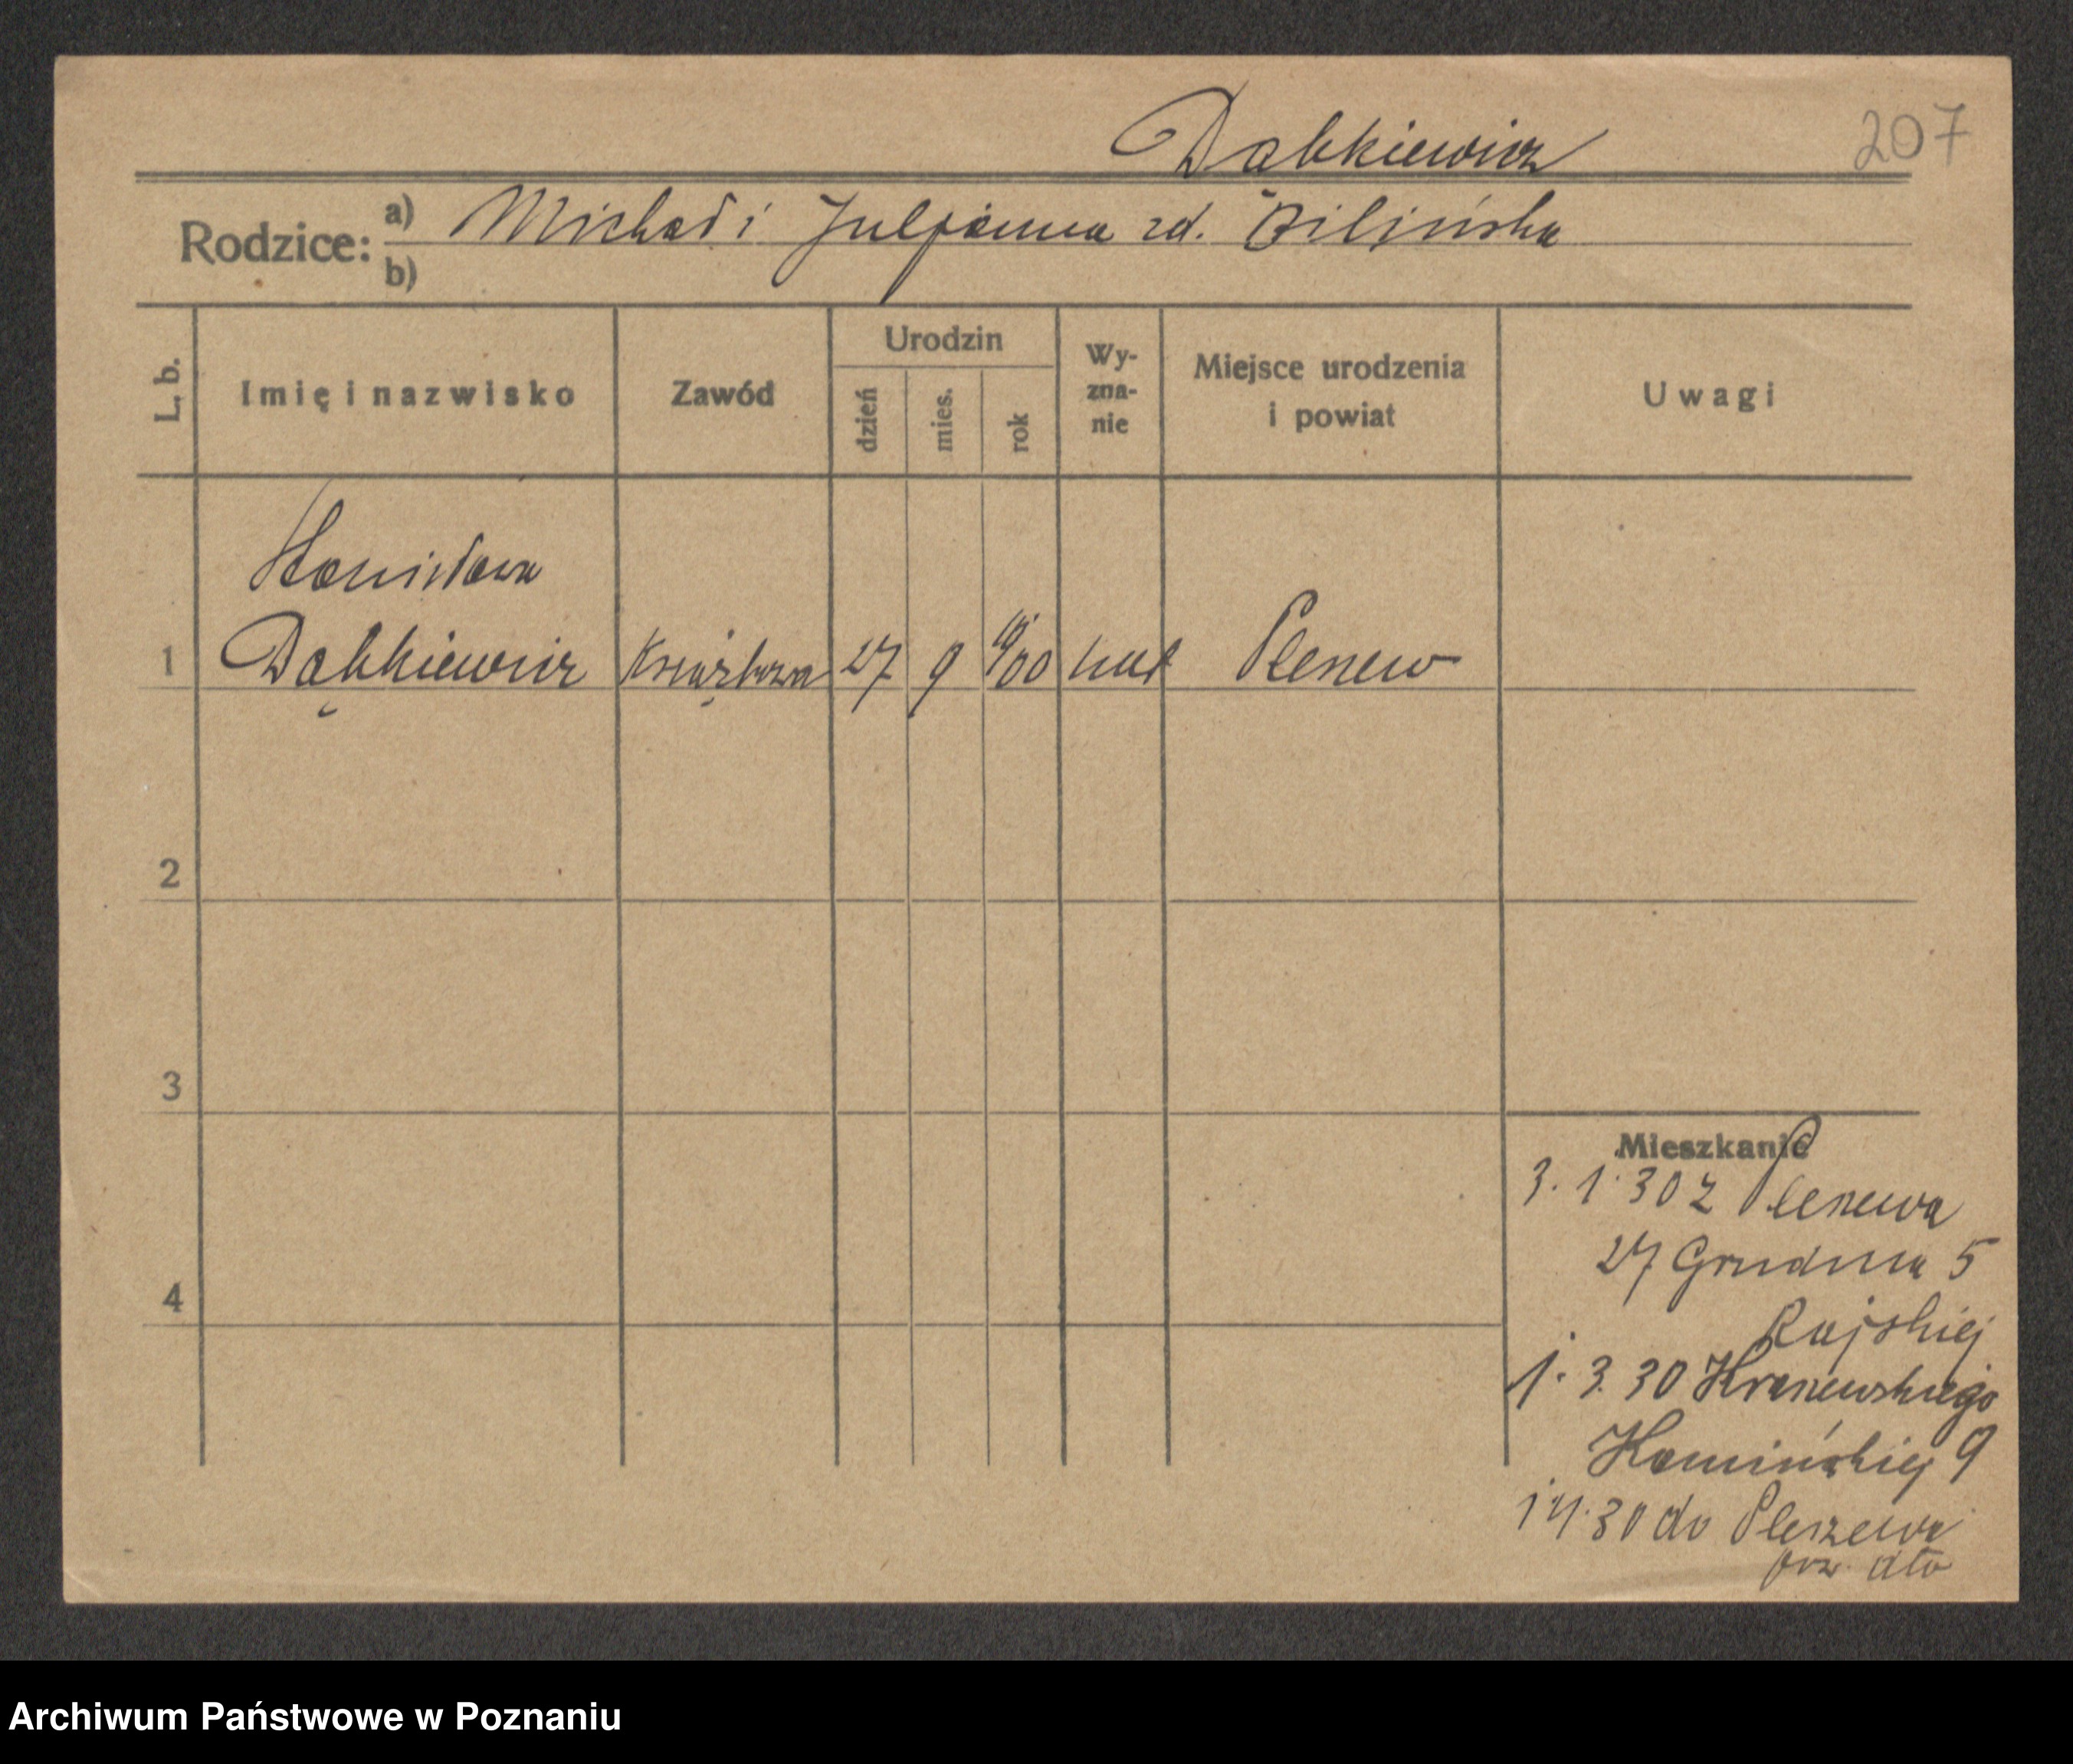 Dąbkiewicz
207
Rodzice: a) Michał i Juljanna zd. Bilińska
b)
L. b. Imię i nazwisko Zawód Urodzin dzień mies. rok Wy-zna-nie Miejsce urodzenia i powiat Uwagi
Stanisława
1 Dąbkiewicz 27 9 1900 kat Pleszew
2
3
4
Mieszkanie
3. 1. 30 z Pleszewa
27 Grudnia 5
Rajskiej
1. 3. 30 Kraszewskiego
Kamińskiej 9
1 4. 30 do Pleszewa